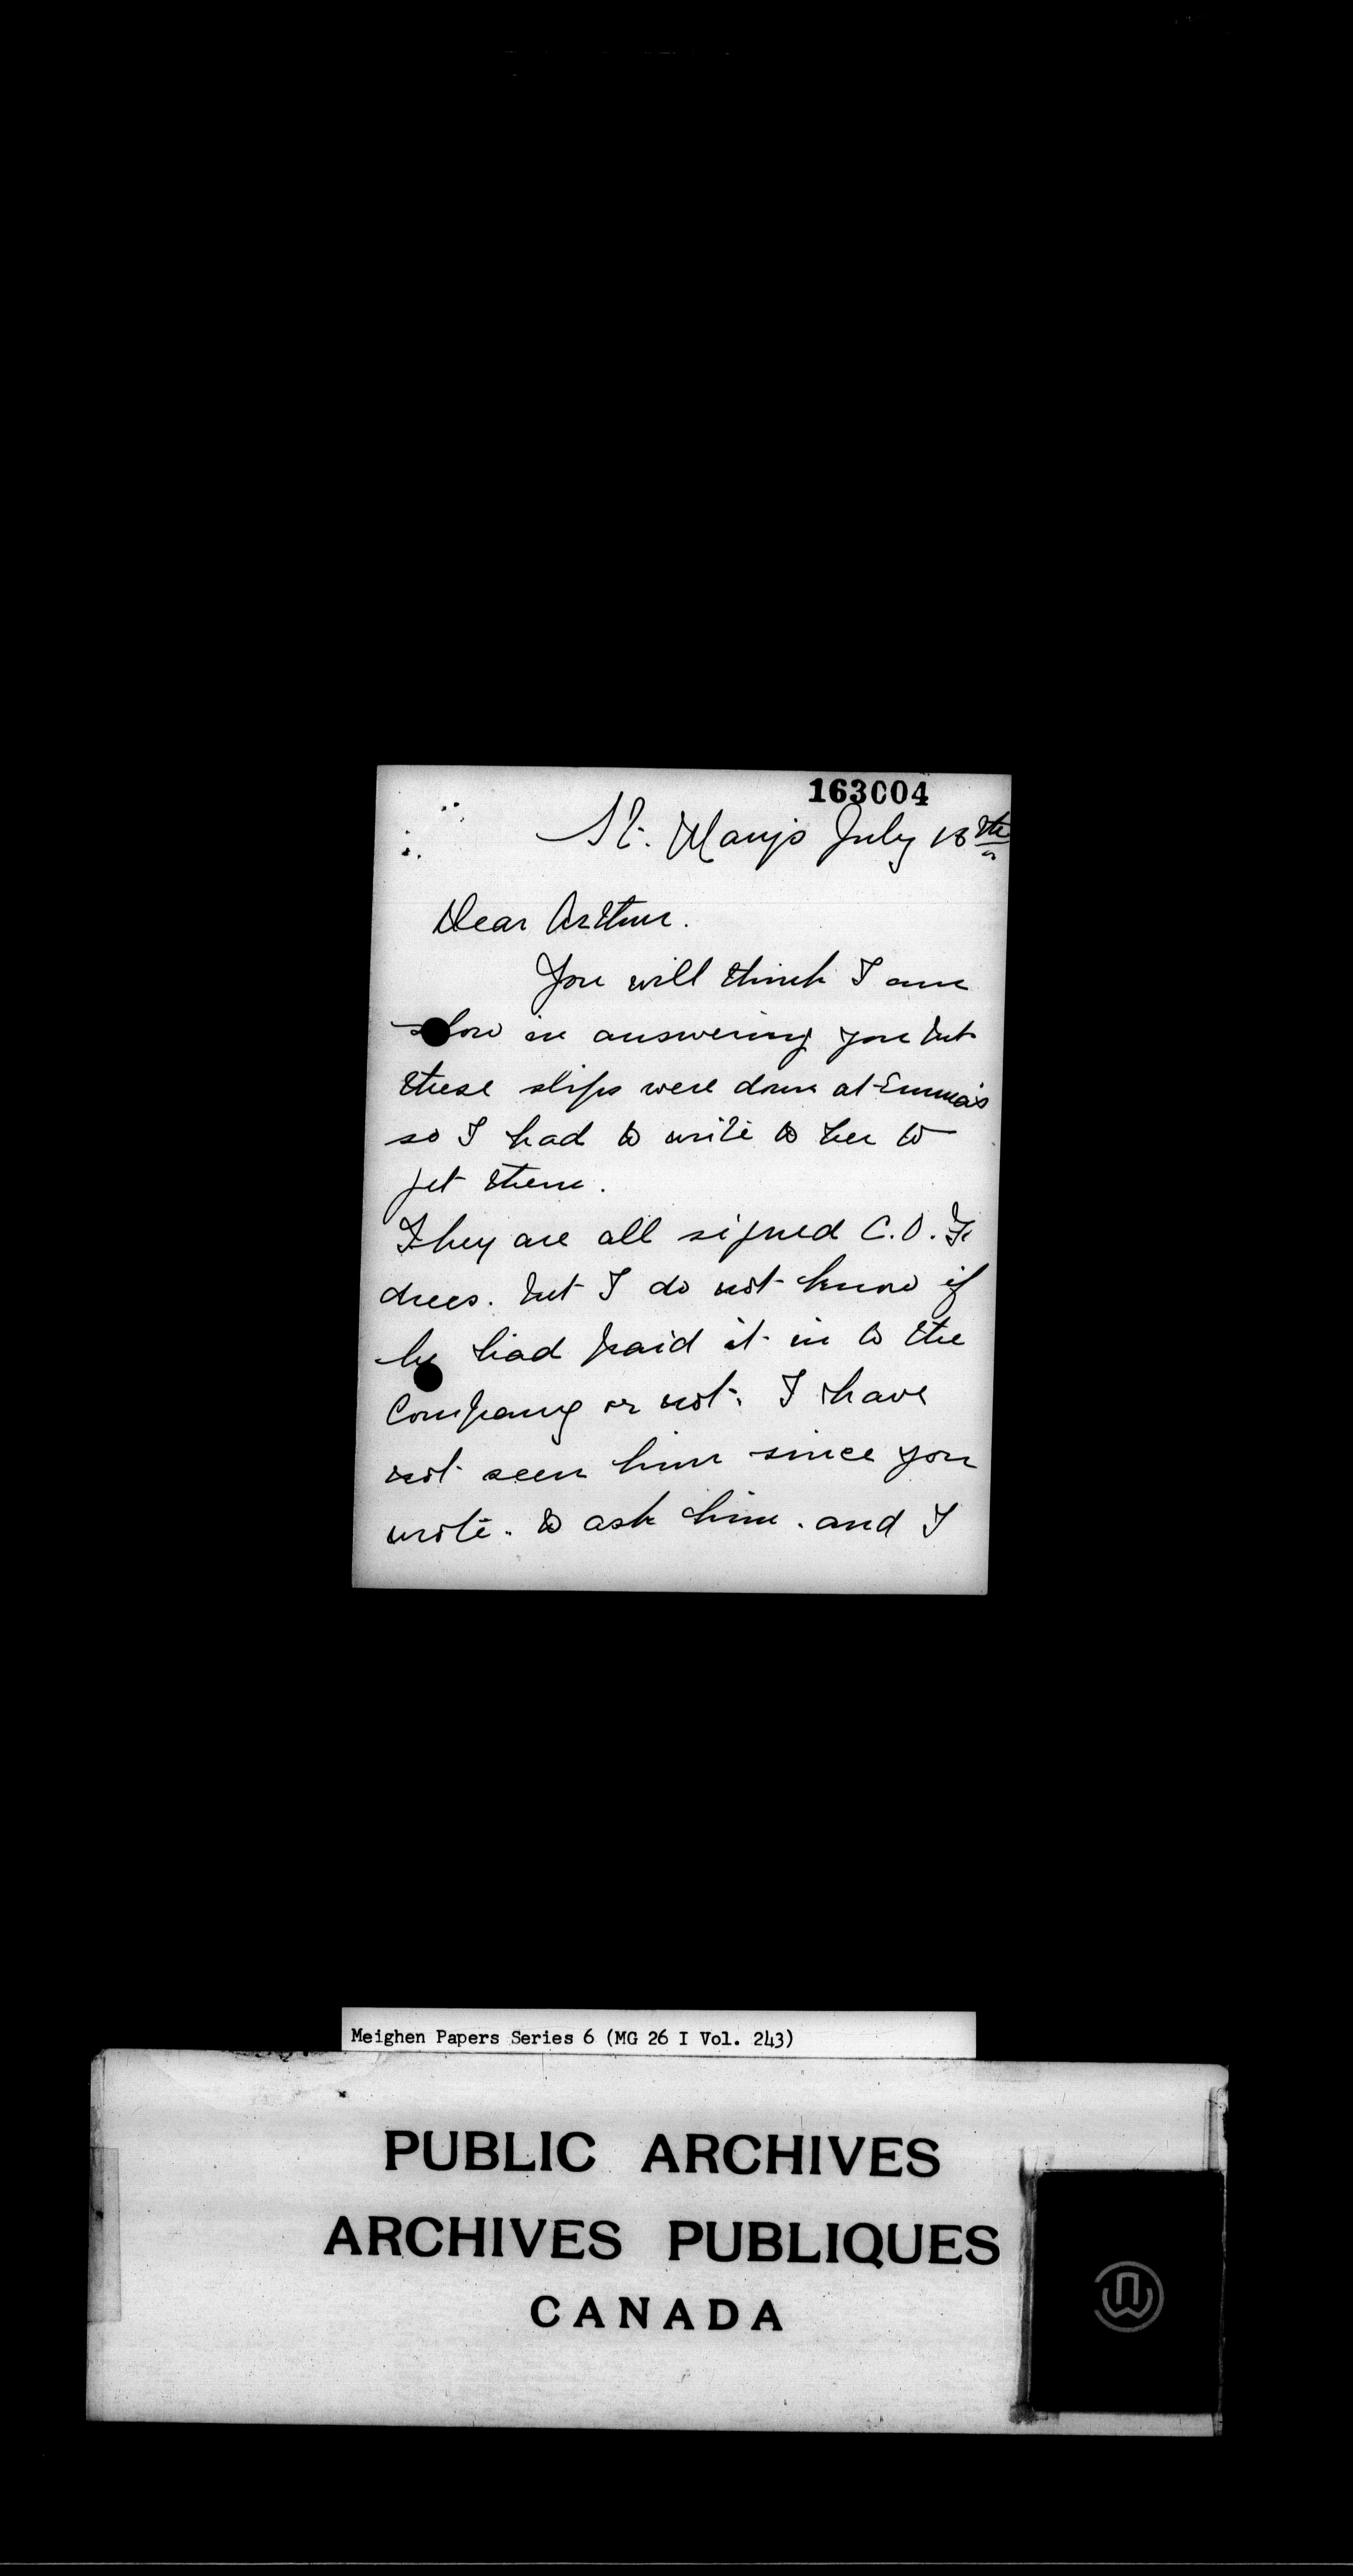 163004
St. Mary's July 18th
Dear Arthur.
You will think I am
slow in answering you but
these slips were down at Emma's
so I had to write to her to
get them.
They are all signed C.O.F.
dues. but I do not know if
he had paid it in to the
Company or not. I have
not seen him since you
wrote. to ask him. and I
Meighen Papers Series 6 (MG 26 I Vol. 243)
PUBLIC ARCHIVES
ARCHIVES PUBLIQUES
CANADA